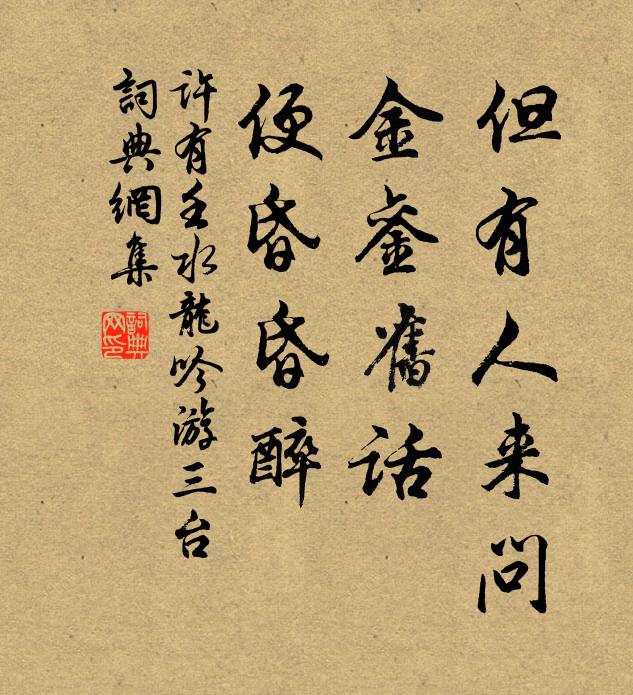 但有人来問
金銮舊話
便昏昏醉
許有壬水龍吟游三台
詞典網集
詞典
网印